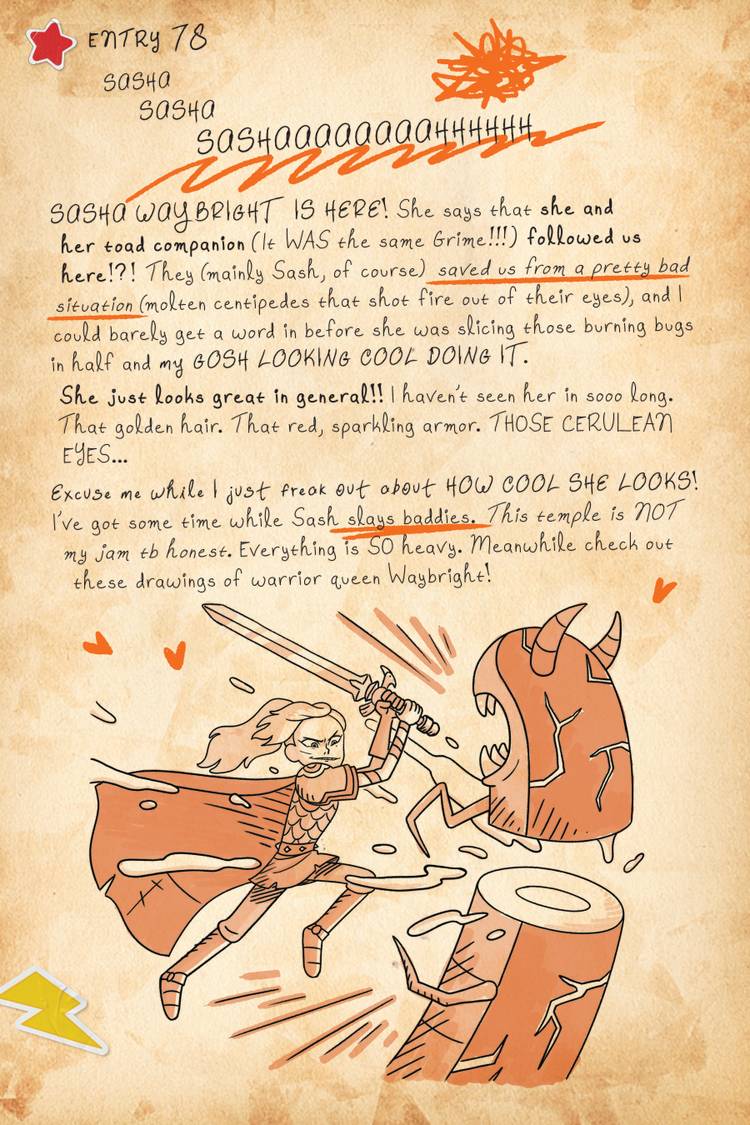 ENTRY 78
SASHA
SASHA
SASHAAAAAAAAAHHHHHH
SASHA WAYBRIGHT IS HERE! She says that she and
her toad companion (It WAS the same Grime!!!) followed us
here!?! They (mainly Sash, of course) saved us from a pretty bad
situation (molten centipedes that shot fire out of their eyes), and I
could barely get a word in before she was slicing those burning bugs
in half and my GOSH LOOKING COOL DOING IT.
She just looks great in general!! I haven't seen her in sooo long.
That golden hair. That red, sparkling armor. THOSE CERULEAN
EYES...
Excuse me while I just freak out about HOW COOL SHE LOOKS!
I've got some time while Sash slays baddies. This temple is NOT
my jam tb honest. Everything is SO heavy. Meanwhile check out
these drawings of warrior queen Waybright!